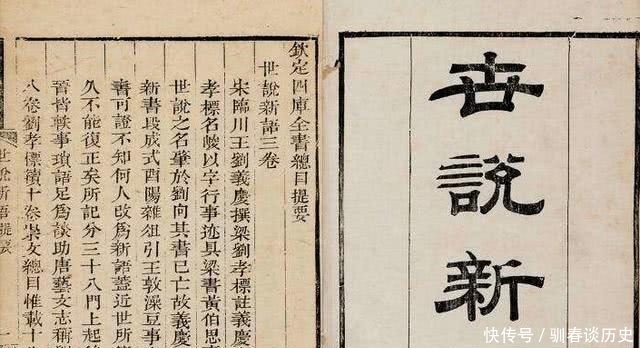 世說新
欽定四庫全書總目提要
世說新語三卷
宋臨川王劉義慶撰梁劉孝標註義
孝標名峻以字行事迹具梁書黃伯思
世說之名肇於劉向其書已亡故義慶
新書段成式酉陽雜俎引王敦澡豆事
書可證不知何人改為新語蓋近世所
久不能復正矣所記分三十八門上起
晉皆軼事瑣語足為談助唐藝文志稱
八卷劉孝標續十卷崇文總目惟載十
世說新語提要
快传号 / 驯春谈历史